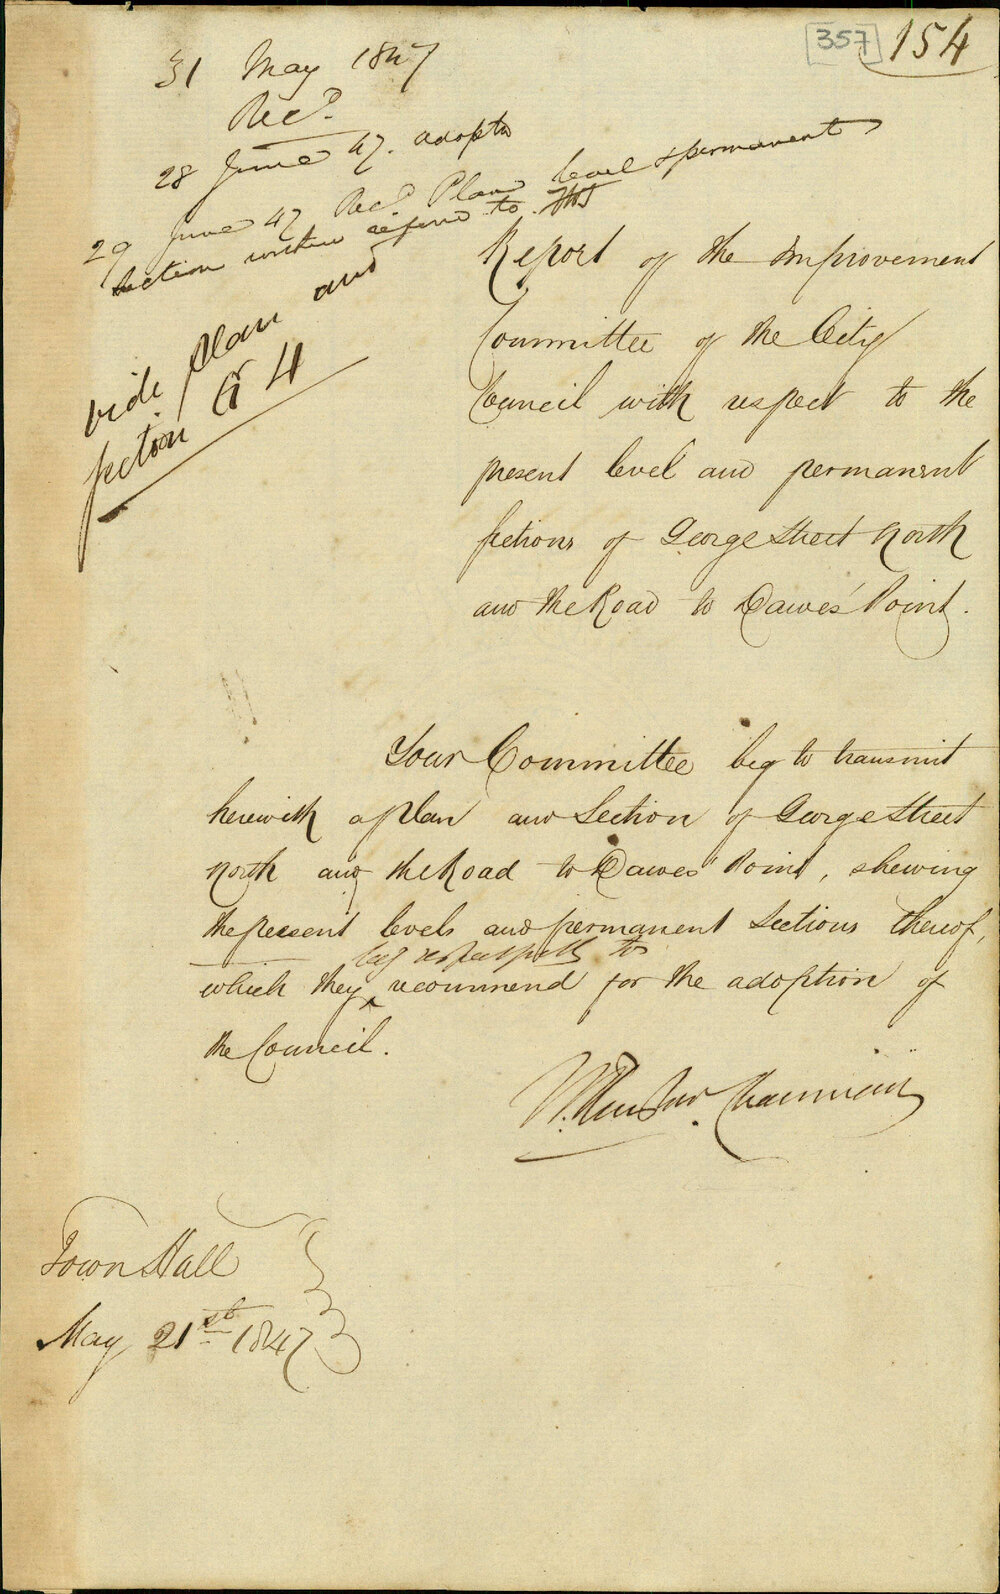 357 154
31 May 1847
Recd.
28 June 47. adoptd
29 June 47 Recd. Plan level & permanent
Section within referred to
vide plan and
section Gr 4
Report of the Improvement
Committee of the City
Council with respect to the
present level and permanent
sections of George Street North
and the Road to Dawes' Point.
Your Committee beg to transmit
herewith a plan and Section of George Street
North and the Road to Dawes' Point, shewing
the present levels and permanent Sections thereof,
beg respectfully to
which they ^ recommend for the adoption of
the Council.
Chairman
Town Hall
May 21st 1847